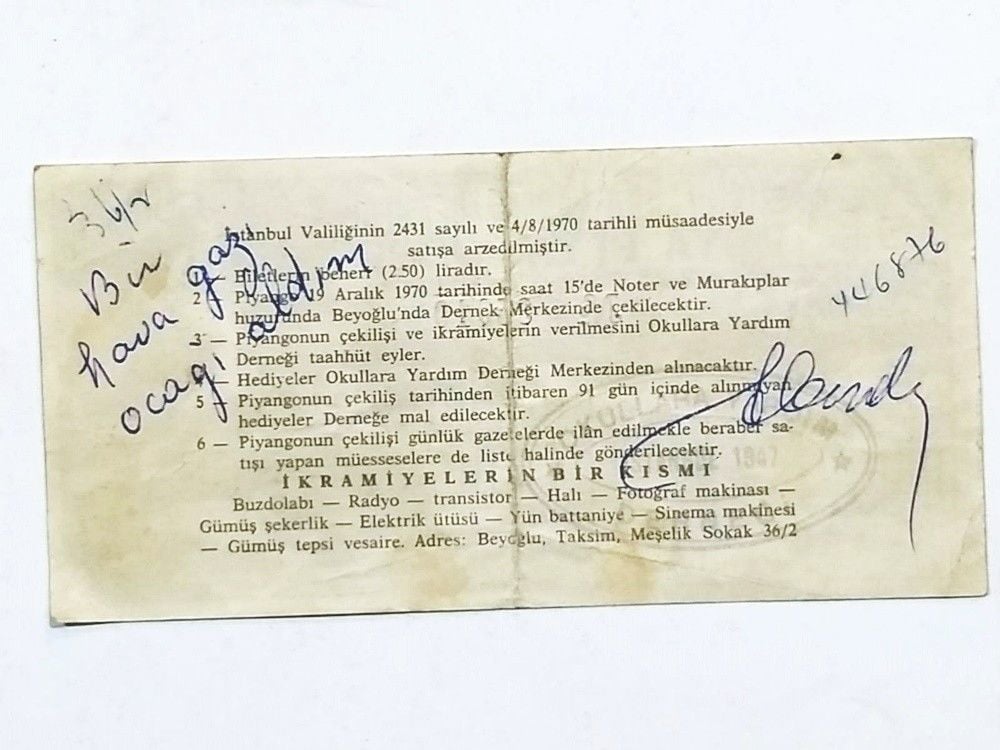 Bir
hava gazı
ocağı aldım
446876
İstanbul Valiliğinin 2431 sayılı ve 4/8/1970 tarihli müsaadesiyle
satışa arzedilmiştir.
1 — Biletlerin beheri (2.50) liradır.
2 — Piyango 19 Aralık 1970 tarihinde saat 15'de Noter ve Murakıplar
huzurunda Beyoğlu'nda Dernek Merkezinde çekilecektir.
3 — Piyangonun çekilişi ve ikrâmiyelerin verilmesini Okullara Yardım
Derneği taahhüt eyler.
— Hediyeler Okullara Yardım Derneği Merkezinden alınacaktır.
5 — Piyangonun çekiliş tarihinden itibaren 91 gün içinde alınmayan
hediyeler Derneğe mal edilecektir.
6 — Piyangonun çekilişi günlük gazetelerde ilân edilmekle beraber sa-
tışı yapan müesseselere de liste halinde gönderilecektir.
İKRAMİYELERİN BİR KISMI
Buzdolabı — Radyo — transistor — Halı — Fotoğraf makinası —
Gümüş şekerlik — Elektrik ütüsü — Yün battaniye — Sinema makinesi
— Gümüş tepsi vesaire. Adres: Beyoğlu, Taksim, Meşelik Sokak 36/2
1947